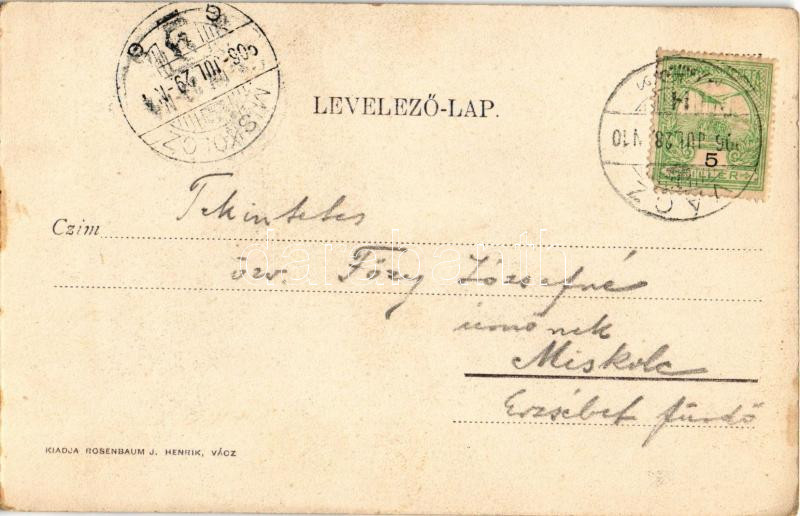 LEVELEZŐ-LAP.
MISKOLCZ
906 JUL 29
VÁCZ
906 JUL 28
5
FILLÉR
Czim
Tekintetes
özv. Fözy Józsefné
úrnőnek
Miskolc
Erzsébet fürdő
KIADJA ROSENBAUM J. HENRIK, VÁCZ
darabanth